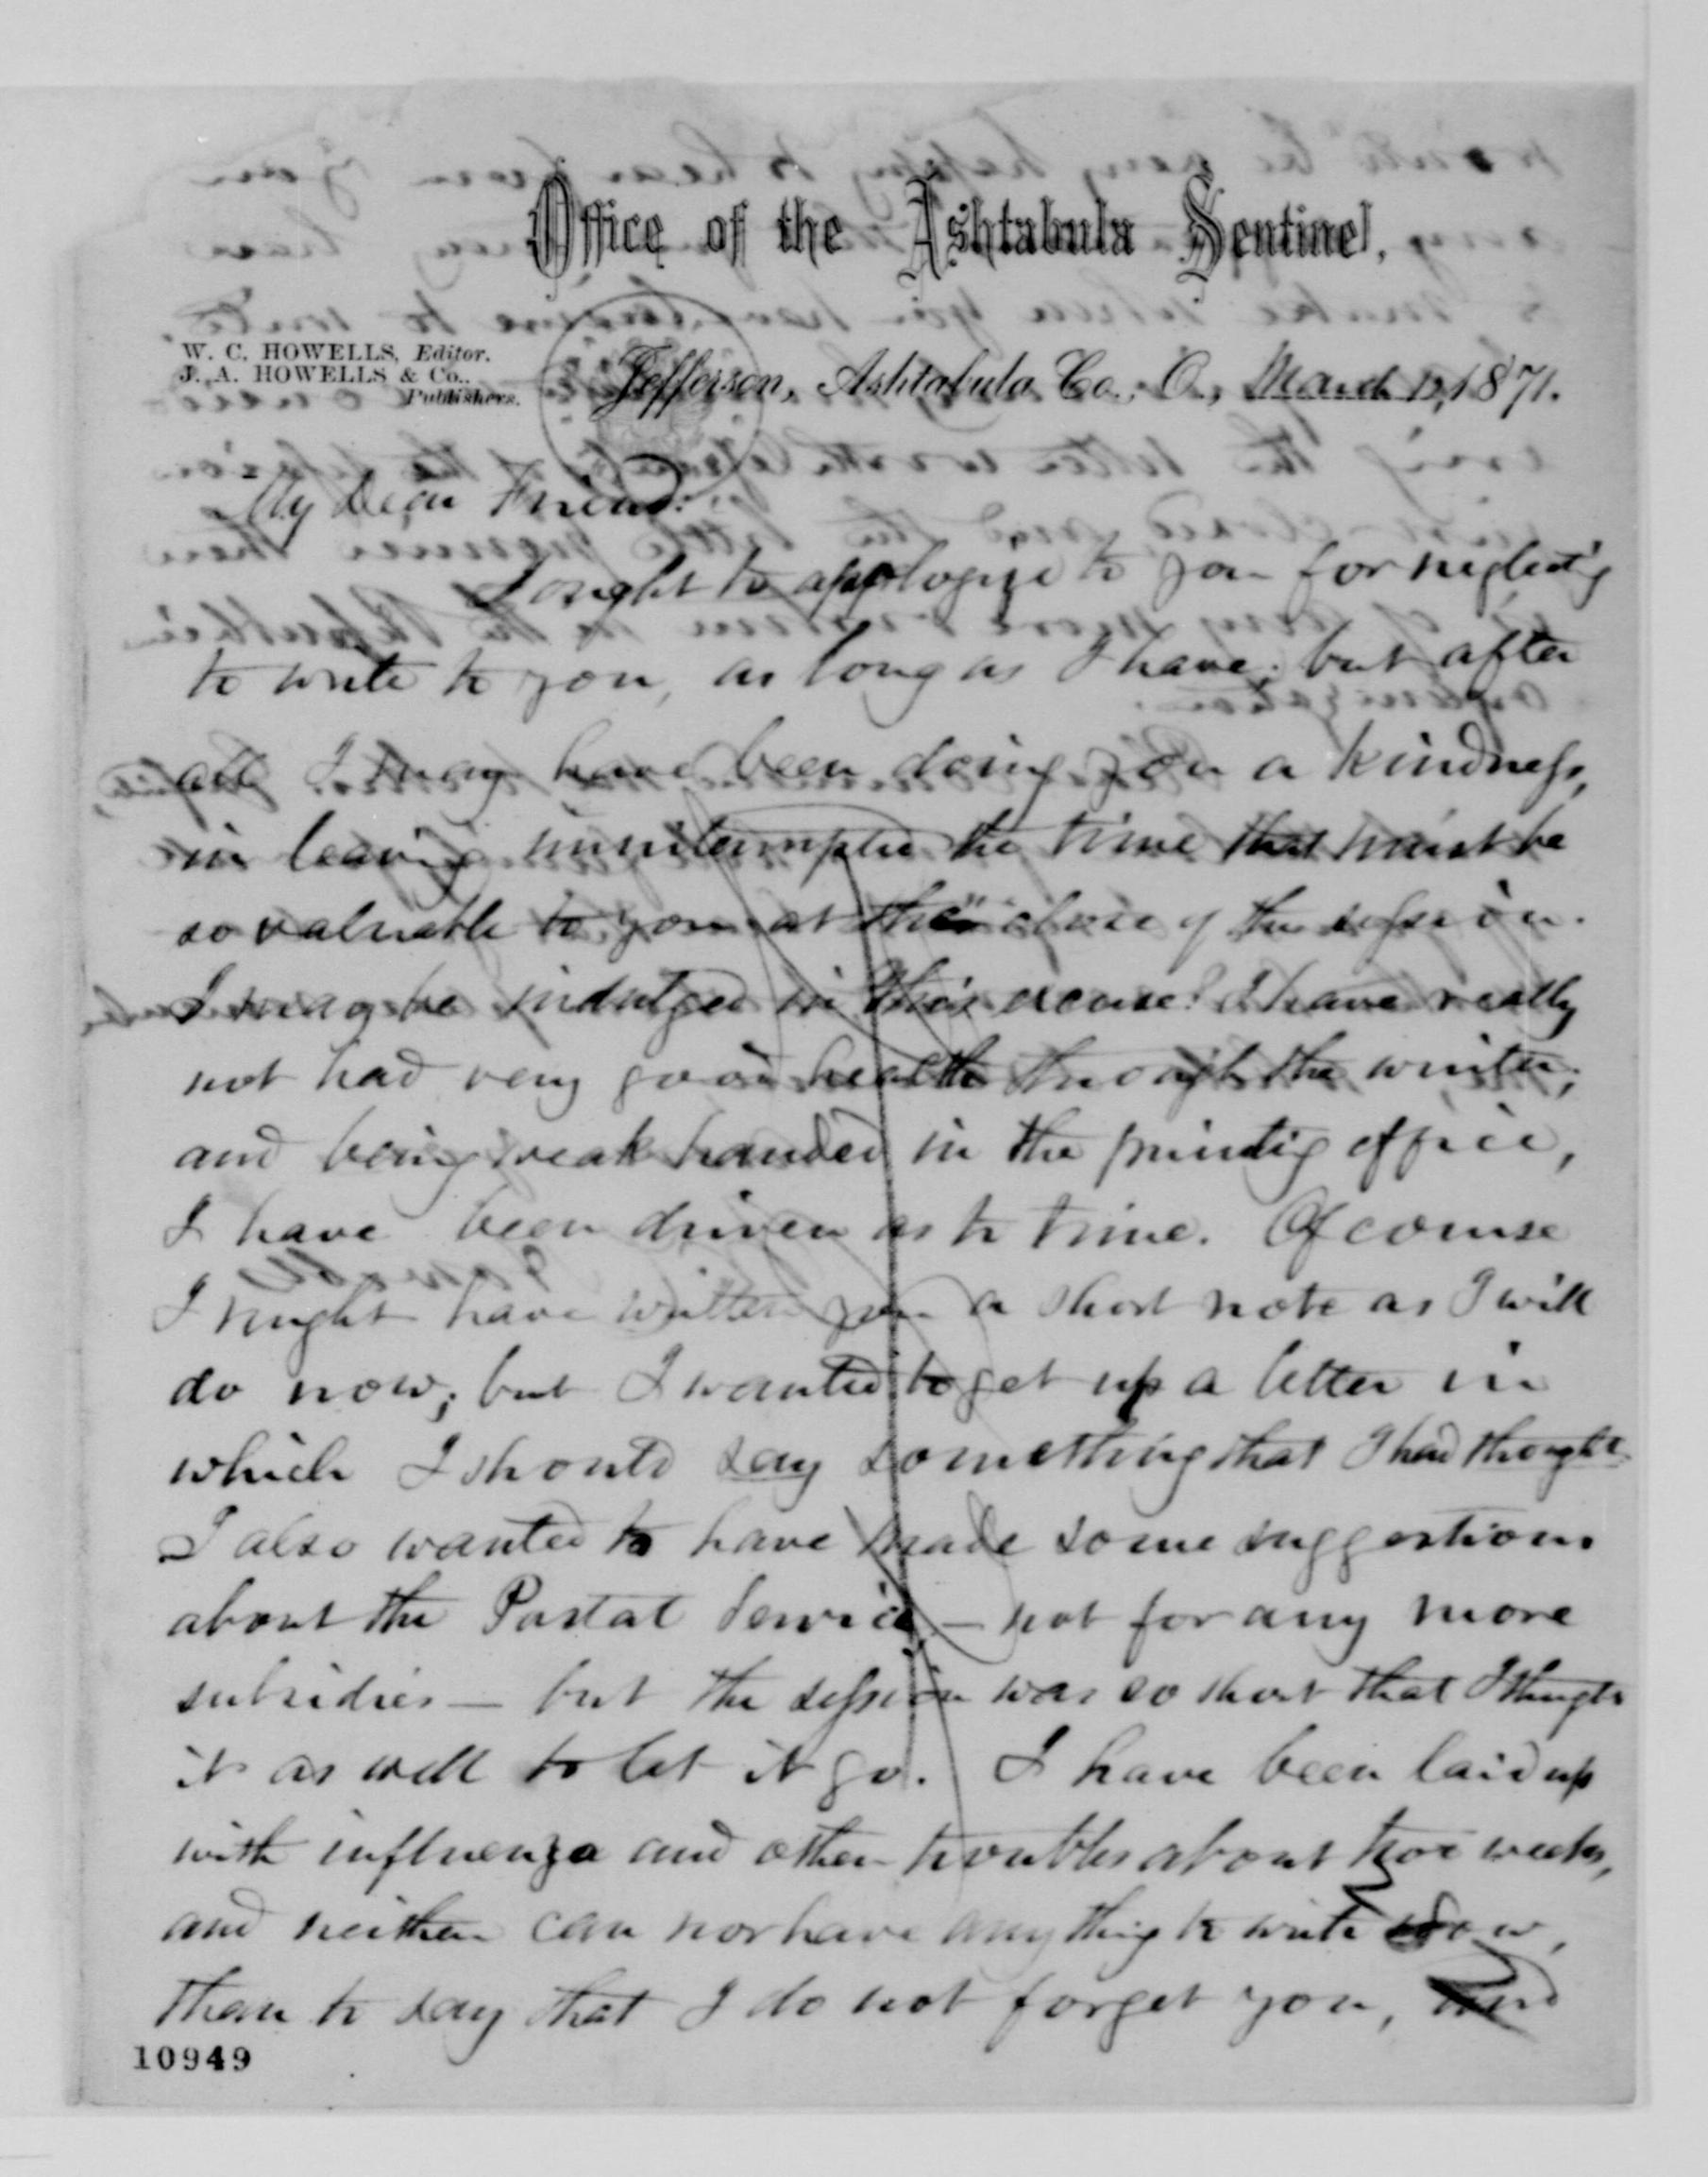 Office of the Ashtabula Sentinel,
W. C. HOWELLS, Editor.
J. A. HOWELLS & Co.,
Publishers.
Jefferson, Ashtabula Co., O., March 12, 1871.
My Dear Friend:
I ought to appologize to you for neglectig
to write to you, as long as I have; but after
all I may have been doing you a kindness,
in leaving uninterrupted the time that must be
so valuable to you at the close of the session.
I may be indulged in this excuse? I have really
not had very good health through the winter;
and being weak handed in the printig office,
I have been driven as to time. Of course
I might have written you a short note as I will
do now; but I wanted to get up a letter in
which I should say something that I had thought.
I also wanted to have made some suggestions
about the Postal Service, — not for any more
subsidies — but the session was so short that I thought
it as well to let it go. I have been laid up
with influenza and other troubles about two weeks,
and neither can nor have any thing to write now,
than to say that I do not forget you,
10949